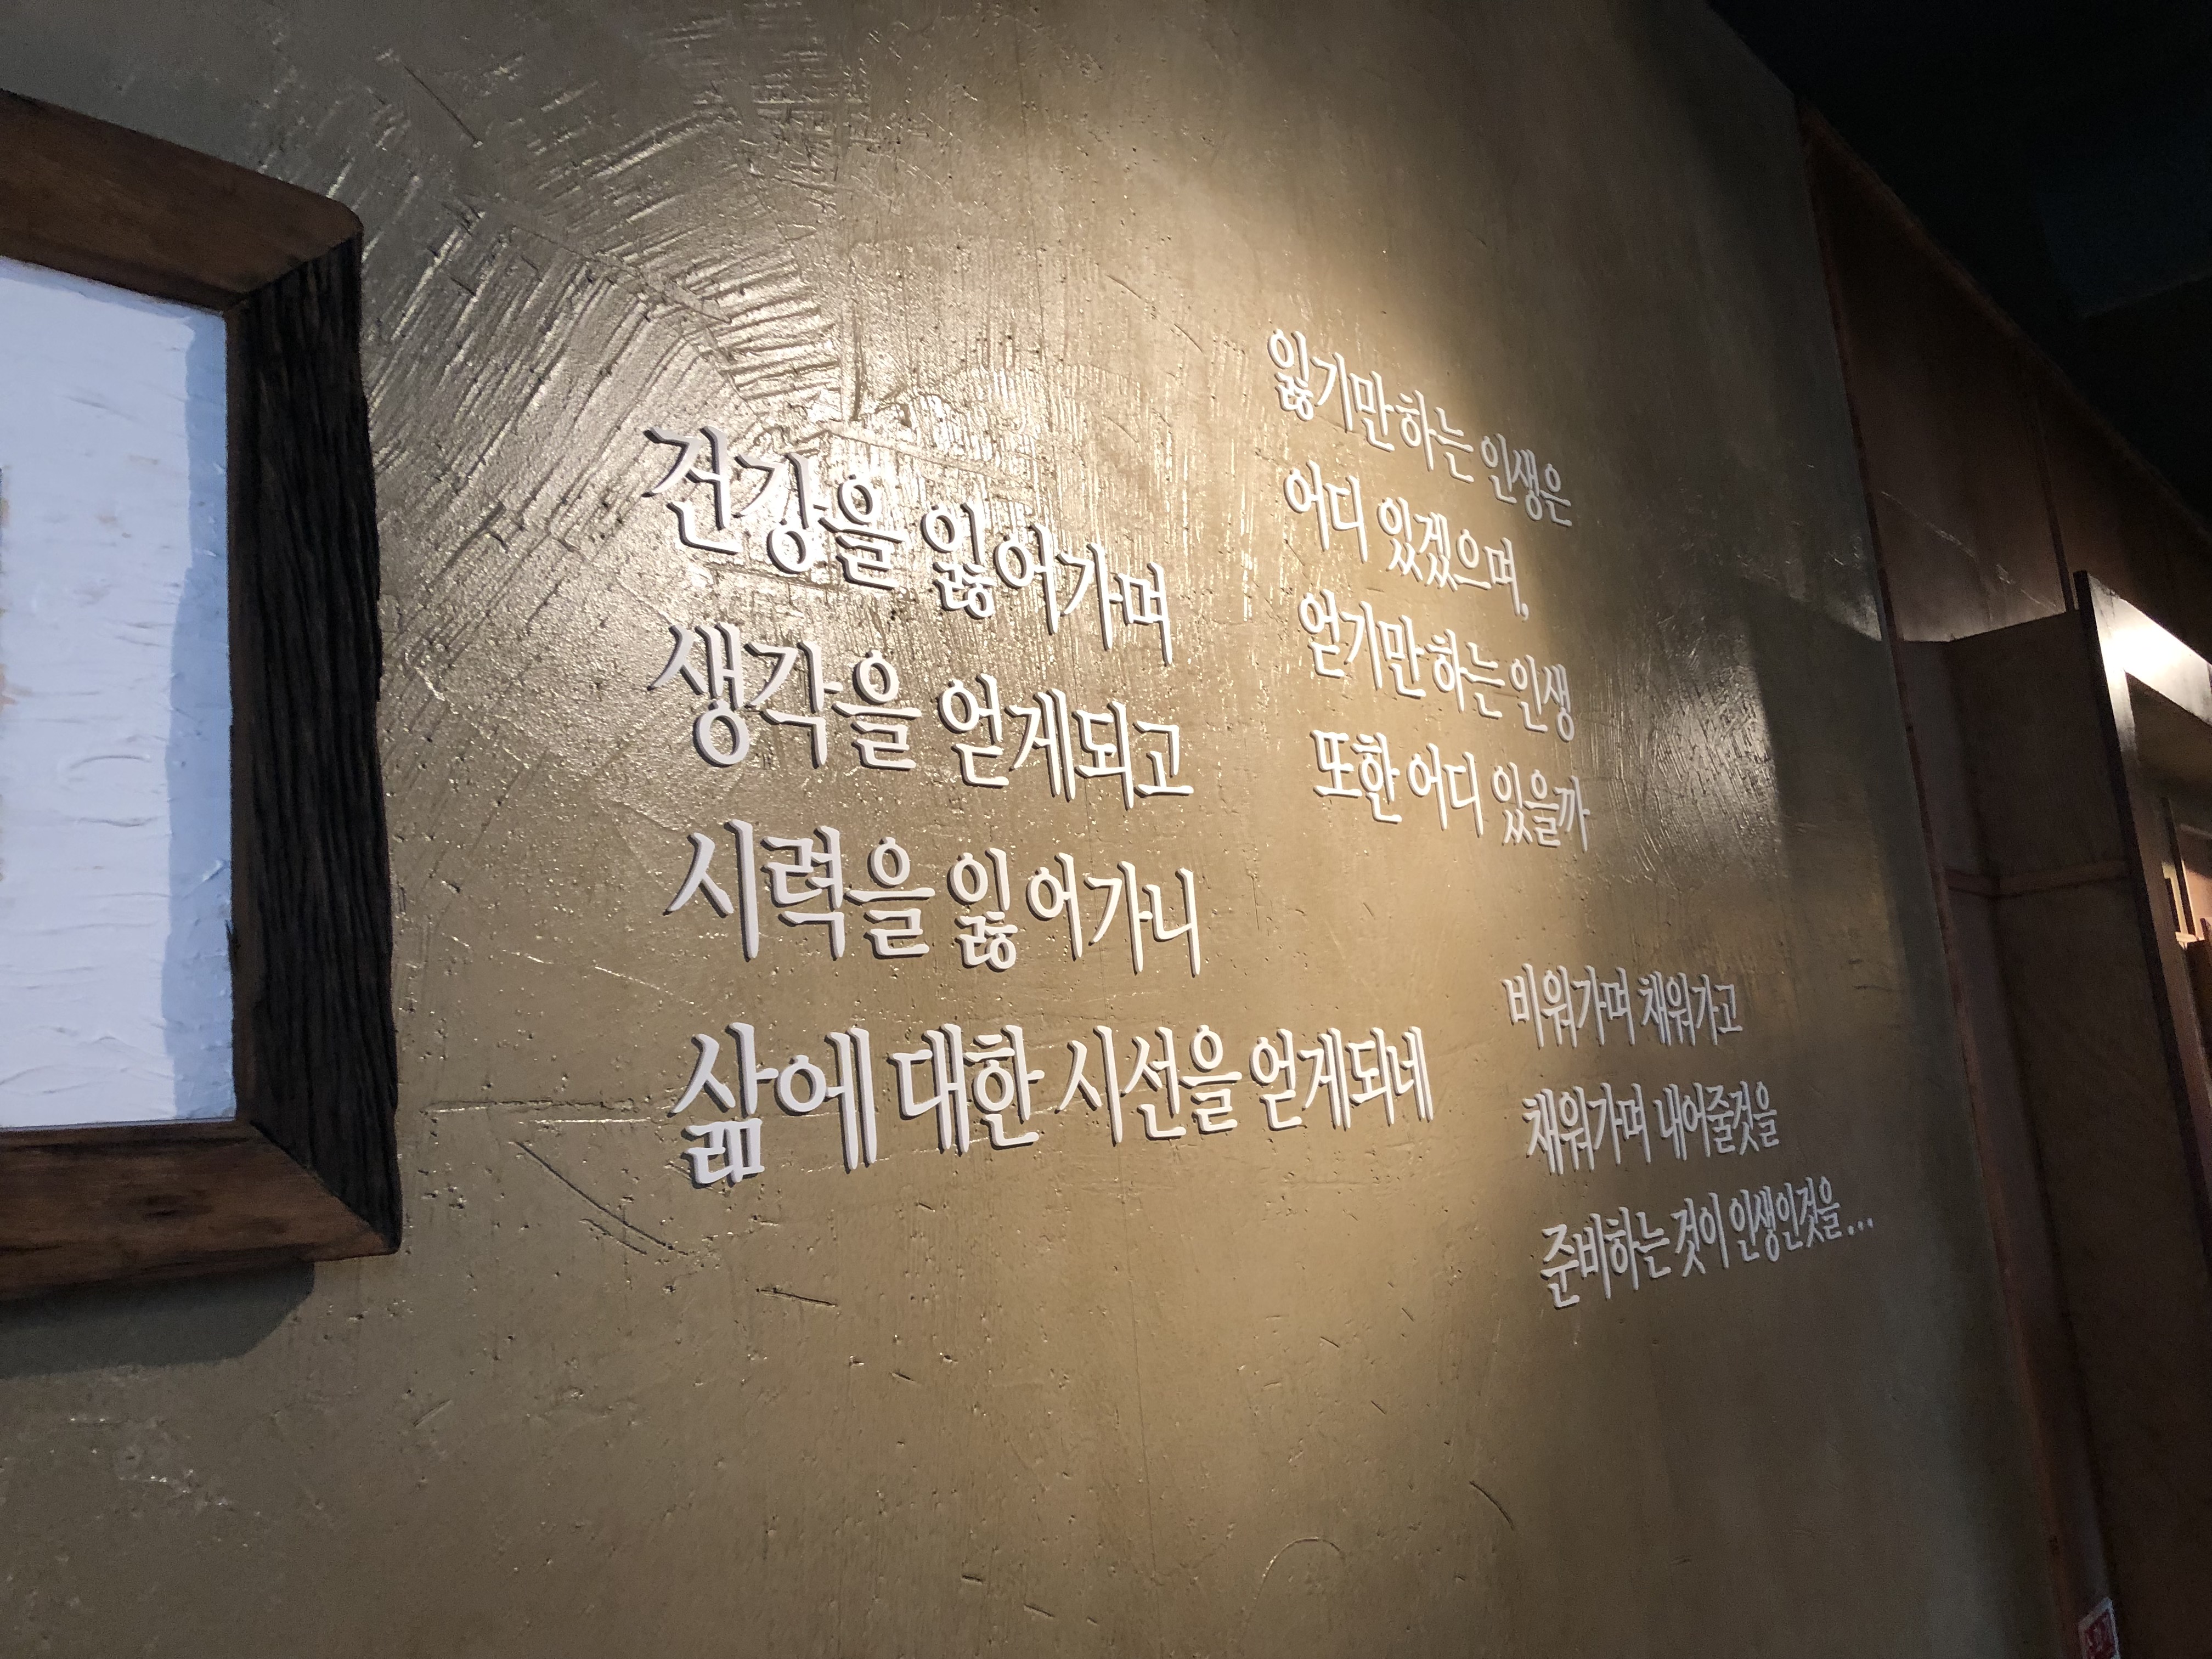 건강을 잃어가며
생각을 얻게되고
시력을 잃어가니
삶에 대한 시선을 얻게되네
잃기만하는 인생은
어디 있겠으며,
얻기만하는 인생
또한 어디 있을까
비워가며 채워가고
채워가며 내어줄것을
준비하는 것이 인생인것을...